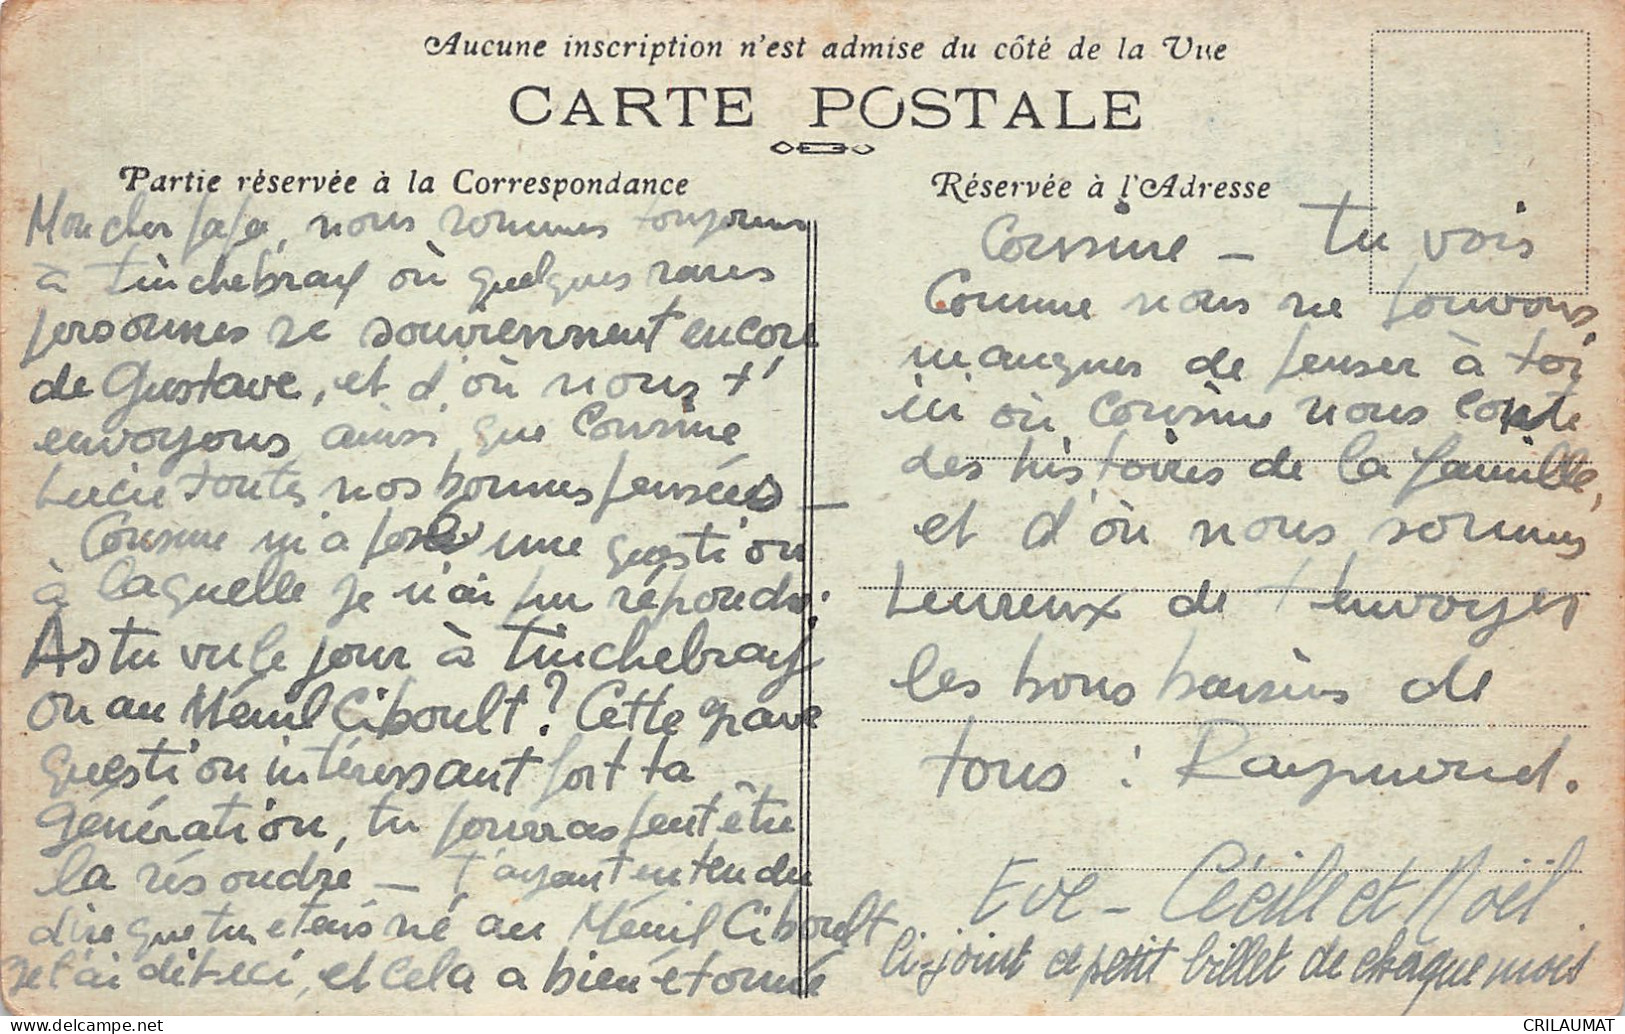 Aucune inscription n'est admise du côté de la Vue
CARTE POSTALE
Partie réservée à la Correspondance
Mon cher papa, nous sommes toujours
à Tinchebray où quelques rares
personnes se souviennent encore
de Gustave, et d'où nous t'
envoyons ainsi que Cousine
Lucie toutes nos bonnes pensées —
Cousine m'a posé une question
à laquelle je n'ai pu répondre:
As tu vu le jour à Tinchebray
ou au Ménil Ciboult? Cette grave
question intéressant fort ta
génération, tu pourras peut être
la résoudre — T'ayant entendu
dire que tu etais né au Ménil Ciboult
Je l'ai dit ici, et cela a bien étonné
Réservée à l'Adresse
Cousine — Tu vois
Comme nous ne pouvons,
manquer de penser à toi
ici où Cousine nous conte
des histoires de la famille,
et d'où nous sommes
heureux de t'envoyer
les bons baisers de
tous : Raymond.
Eve — Cécile et Noël
Ci-joint ce petit billet de chaque mois
CRILAUMAT